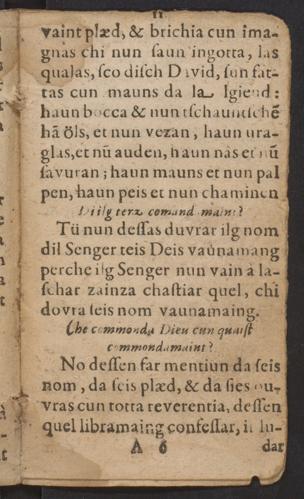 11
vaint plæd, & brichia cun ima-
gnas chi nun saun ingotta, las
qualas, sco disch David, sun fat-
tas cun mauns da la Igiend:
haun bocca & nun tschauntschẽ
hã öls, et nun vezan, haun ura-
glas, et nũ auden, haun nas et nũ
savuran; haun mauns et nun pal
pen, haun peis et nun chaminen
Di ilg terz comand maint?
Tü nun dessas duvrar ilg nom
dil Senger teis Deis vaunamang
perche ilg Senger nun vain à la-
schar zainza chastiar quel, chi
dovra seis nom vaunamaing.
Che commonda Dieu cun quaist
commondamaint?
No dessen far mentiun da seis
nom, da seis plæd, & da sies ou-
vras cun totta reverentia, dessen
quel libramaing confessar, in lu-
A 6 dar